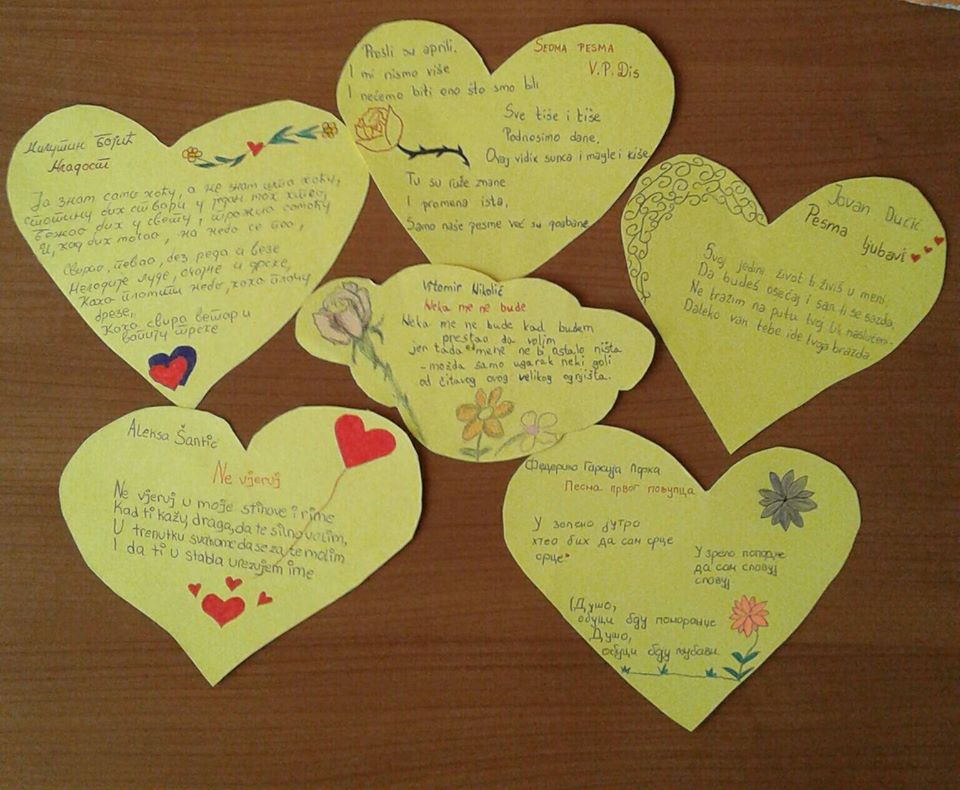 Милутин Бојић
Младост
Ја знам само хоћу, а не знам шта хоћу,
стотину бих ствари у један мах хтео,
Божао бих у свету и тражио самоћу
И, кад бих могао, на небо се пео,
Свирао, певао, без реда и везе
Мелодије луде, очајне и дреке,
Како пламти небо, како плачу
брезе,
Како свира ветар и
вапију преке
Prošli su aprili.
I mi nismo više
I nećemo biti ono što smo bili
SEDMA PESMA
V.P. Dis
Sve tiše i tiše
Podnosimo dane,
Ovaj vidik sunca i magle i kiše
Tu su ruže znane
I promena ista,
Samo naše pesme već su
Jovan Dučić
Pesma ljubavi
Svoj jedini život ti živiš u meni
Da budeš osećaj i san ti se sazda,
Ne tražim na putu tvoj lik
Daleko van tebe ide tvoja brazda.
Vitomir Nikolić
Neka me ne bude
Neka me ne bude kad budem
prestao da volim
jer tada od mene ne bi ostalo ništa
- možda samo ugarak neki goli
od čitavog ovog velikog ognjišta.
Aleksa Šantić
Ne vjeruj
Ne vjeruj u moje stihove i rime
Kad ti kažu, draga, da te silno volim,
U trenutku svakome da se za te molim
I da ti u stabla urezujem ime
Федерико Гарсија Лорка
Песма првог
У зелено јутро
хтео бих да сам срце
срце
У зрело
да сам славуј
славуј
(Душо,
обуци боју поморанџе
Душо,
обуци боју љубави